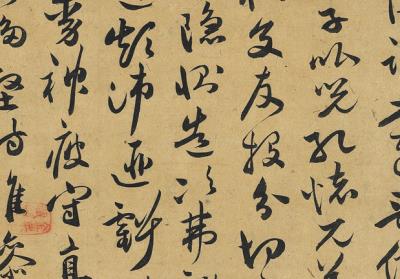 子比兒孔懷兄
枝交友投分切
隱惻造次弗離
退顛沛匪虧
動神疲守真
移堅持雅操